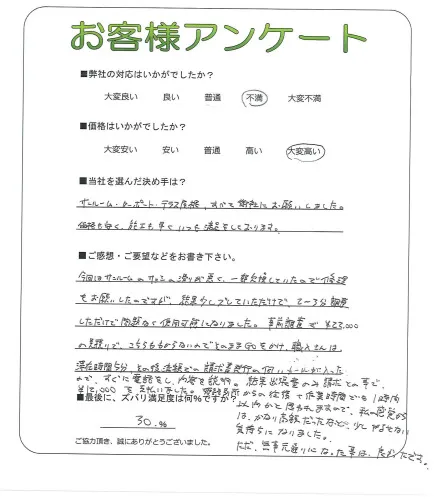 お客様アンケート
■弊社の対応はいかがでしたか？
大変良い 良い 普通 不満 大変不満
■価格はいかがでしたか？
大変安い 安い 普通 高い 大変高い
■当社を選んだ決め手は？
サンルーム・カーポート・テラス屋根、すべて御社にお願いしました。
価格も安く、施工も早くいつも満足をしております。
■ご感想・ご要望などをお書き下さい。
今回はサンルームのサッシの滑りが悪く、一部交換していたので修理
をお願いしたのですが、結果少しズレていただけで、2〜3分調整
しただけで問題なく使用可能になりました。事前調査で¥23,000
の見積りで、こちらもわからないのでそのままGOをかけ、職人さんは
滞在時間5分、その後法額での請求書発行の伺いメールが入った
ので、すぐに電話をし、内容を説明。結果出張費のみ請求との事で、
¥12,000を支払いました。事務所からの往復+作業時間でも1時間
■最後に、ズバリ満足度は何%ですか？
以内かと思われますので、私の感覚から
は、かなり高額だったなと、少しやるせない
気持ちになりました。
ただ、無事元通りになった事は、良かったです。
30.%
ご協力頂き、誠にありがとうございました。